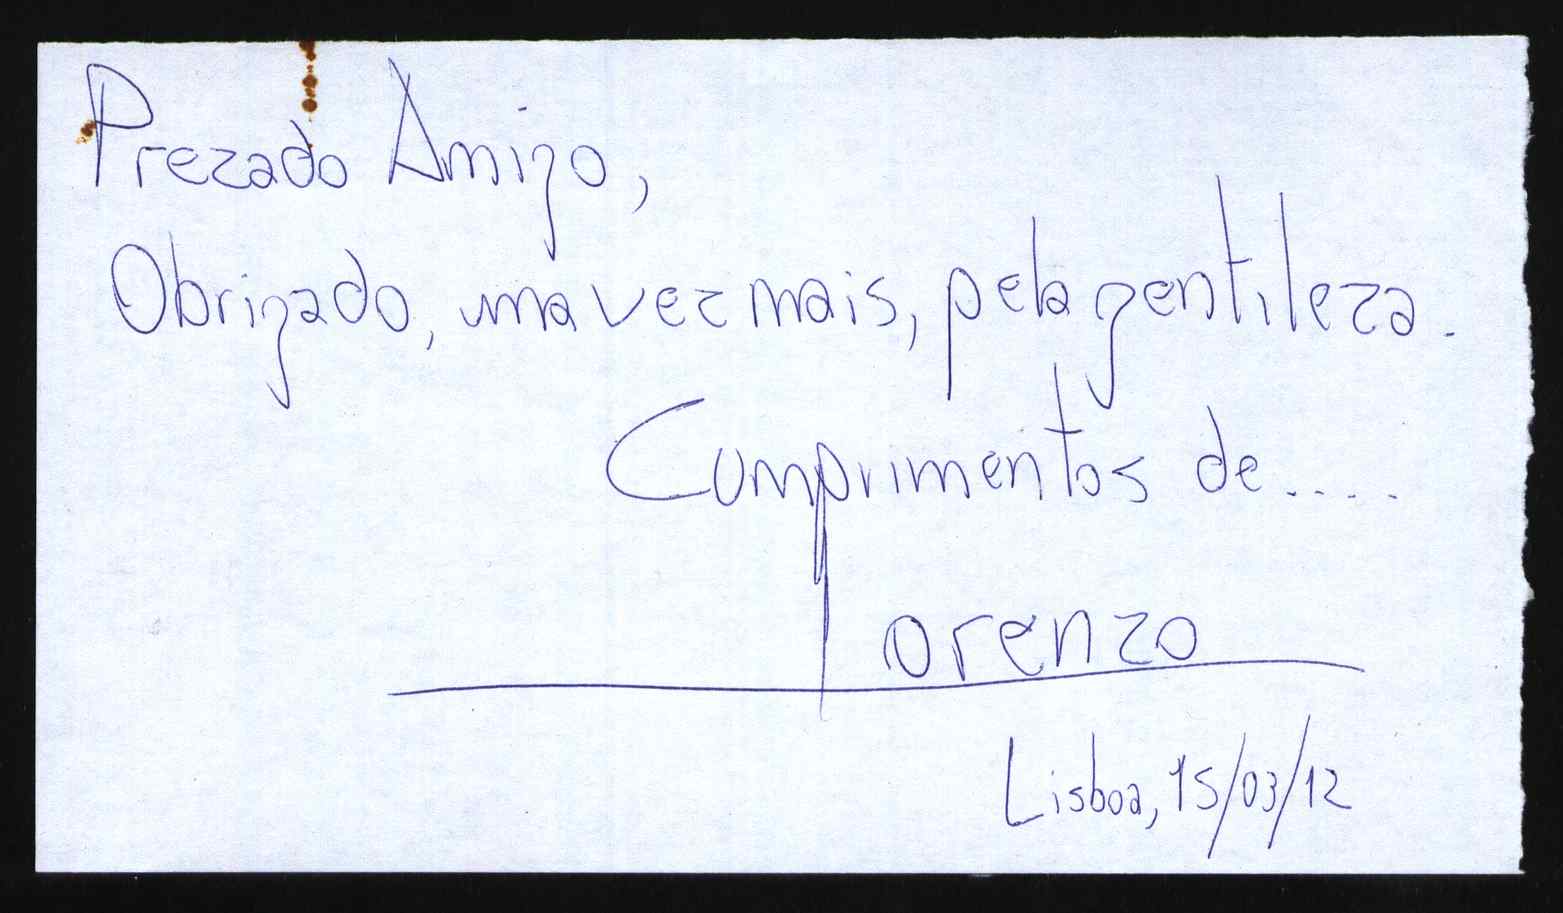 Prezado Amigo,
Obrigado, uma vez mais, pela gentileza.
Cumprimentos de.....
Lorenzo
Lisboa, 15/03/12